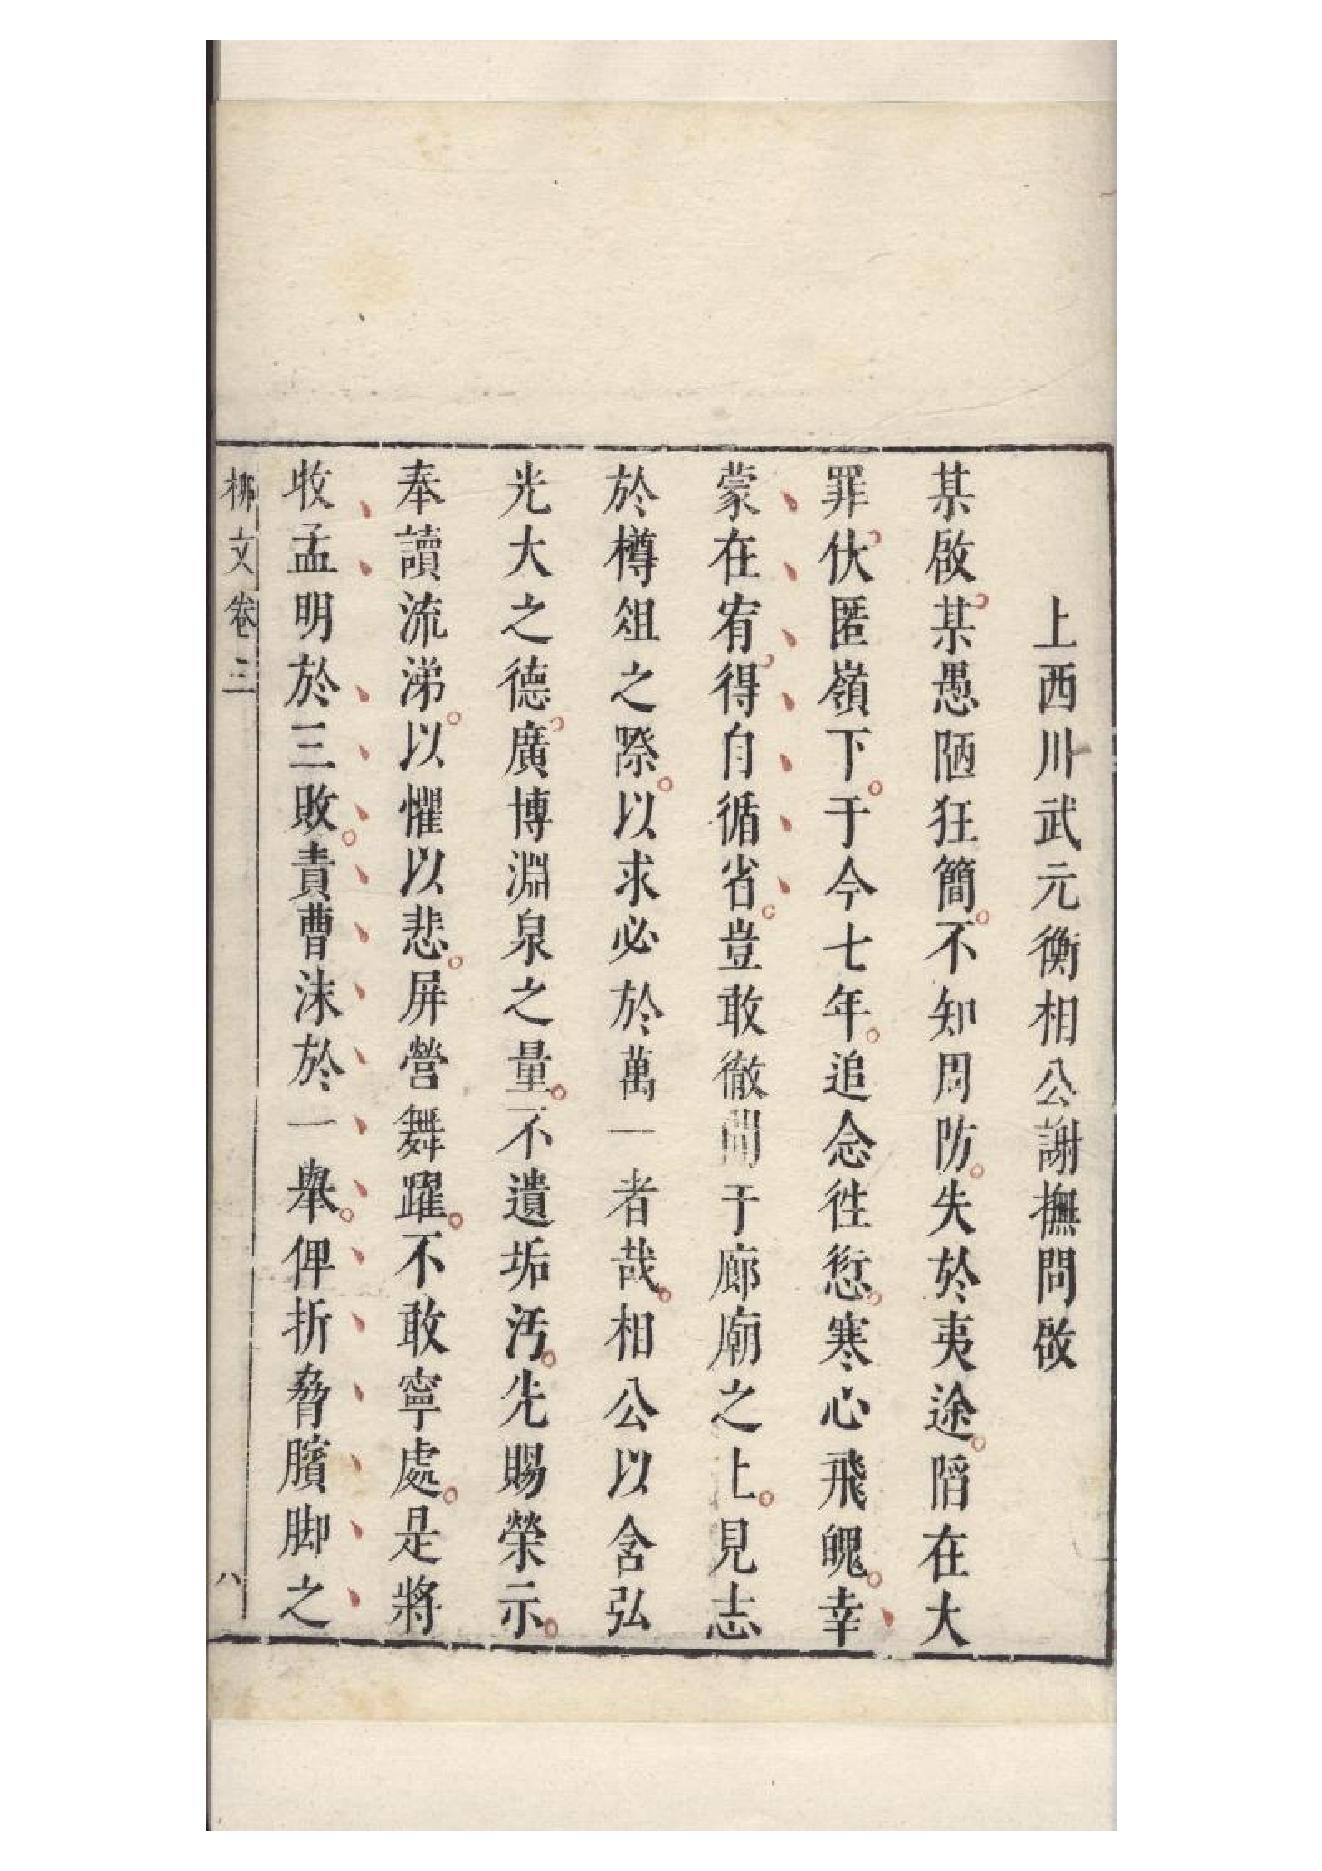 上西川武元衡相公謝撫問啟
某啟某愚陋狂簡不知周防失於夷途陷在大
罪伏匿嶺下于今七年追念往愆寒心飛魄幸
蒙在宥得自循省豈敢徹聞于廊廟之上見志
於樽俎之際以求必於萬一者哉相公以含弘
光大之德廣博淵泉之量不遺垢汚先賜榮示
奉讀流涕以懼以悲屏營舞躍不敢寧處是將
收孟明於三敗責曹沫於一舉俾折脅臏脚之
柳文卷三
八